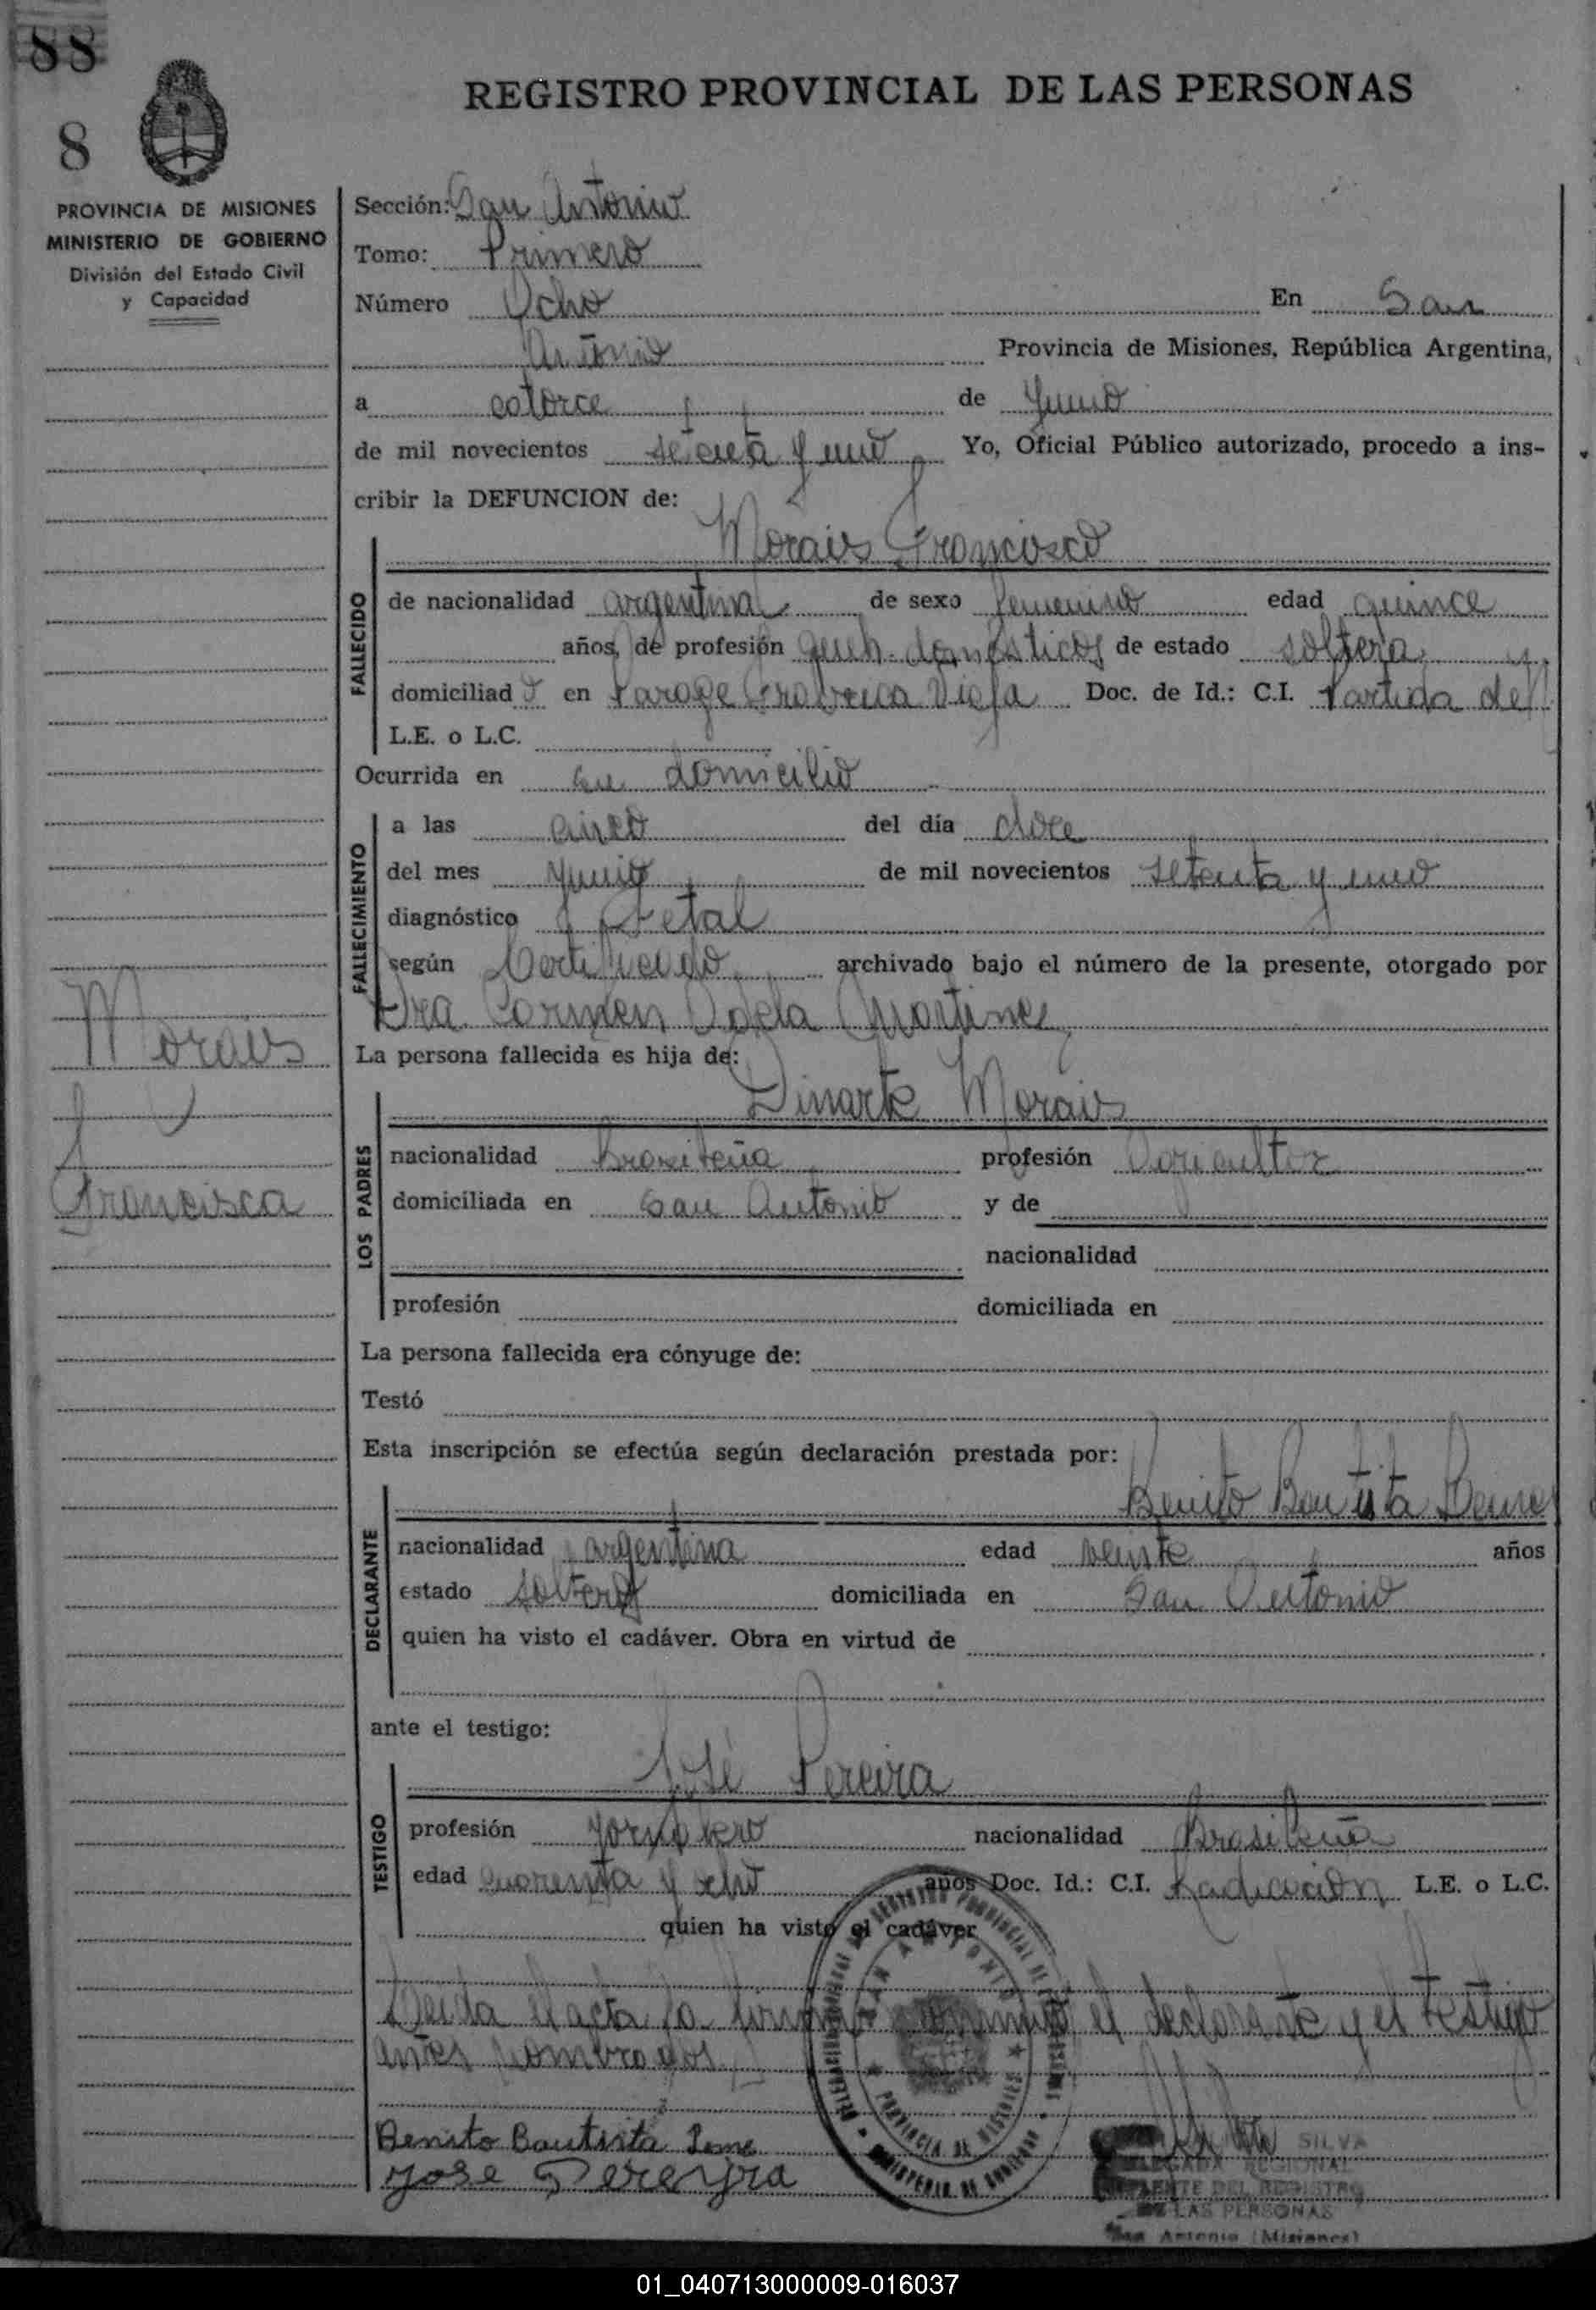 88
8
REGISTRO PROVINCIAL DE LAS PERSONAS
PROVINCIA DE MISIONES
MINISTERIO DE GOBIERNO
División del Estado Civil
y Capacidad
Sección: San Antonio
Tomo: Primero
Número Ocho En San
Antonio Provincia de Misiones, República Argentina,
a catorce de Junio
de mil novecientos setenta y uno Yo, Oficial Público autorizado, procedo a ins-
cribir la DEFUNCION de:
Morais Francisca
FALLECIDO
de nacionalidad argentina de sexo femenino edad quince
años, de profesión domésticos de estado soltera y
domiciliad en Paraje Vieja Doc. de Id.: C.I. Partida de N
L.E. o L.C.
Ocurrida en su domicilio
FALLECIMIENTO
a las cinco del día doce
del mes Junio de mil novecientos setenta y uno
diagnóstico Fetal
según Certificado archivado bajo el número de la presente, otorgado por
Dra. Carmen Martinez
La persona fallecida es hija de:
Dinarte Morais
LOS PADRES
nacionalidad Brasileña profesión Agricultor
domiciliada en San Antonio y de
nacionalidad
profesión domiciliada en
La persona fallecida era cónyuge de:
Testó
Esta inscripción se efectúa según declaración prestada por:
Benito Bautista
DECLARANTE
nacionalidad argentina edad veinte años
estado soltero domiciliada en San Antonio
quien ha visto el cadáver. Obra en virtud de
ante el testigo:
José Pereira
TESTIGO
profesión Jornalero nacionalidad Brasileña
edad cuarenta y ocho años Doc. Id.: C.I. Radicación L.E. o L.C.
quien ha visto el cadáver
Leida el acta la firman conmigo el declarante y el testigo
antes nombrados
Benito Bautista
Jose Pereyra
Morais
Francisca
SAN ANTONIO
PROVINCIA DE MISIONES
SILVA
DELEGADA REGIONAL
SUPLENTE DEL REGISTRO
DE LAS PERSONAS
San Antonio (Misiones)
01_040713000009-016037